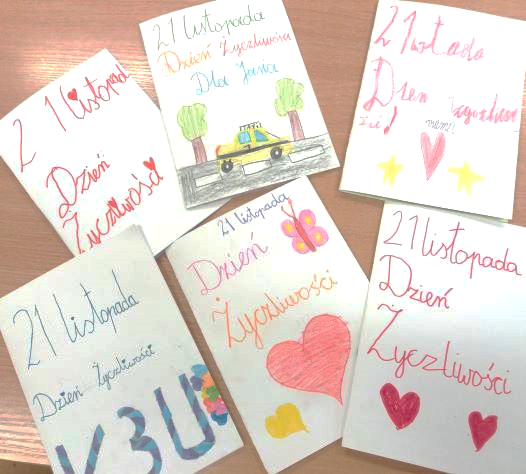 21 listopad
Dzień
Życzliwości
21 listopada
Dzień Życzliwości
Dla Jasia
21
Dzen
mama!
21 listopada
Dzień Życzliwości
21 listopada
Dzień
Życzliwości
21 listopada
Dzień
Życzliwości